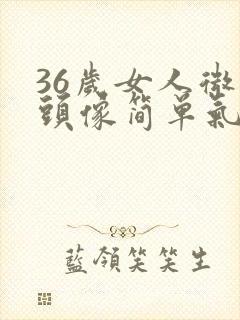 36歲女人微
頭像简單氣
藍領笑笑生